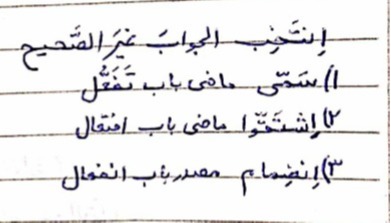 إنتَخِب الجوابَ غَيرَ الصَّحيح
۱) سَمّی ماضی باب تَفَعُّل
۲) إشتَحّوا ماضی باب افتعال
۳) إنضِمام مصدر باب انفعال